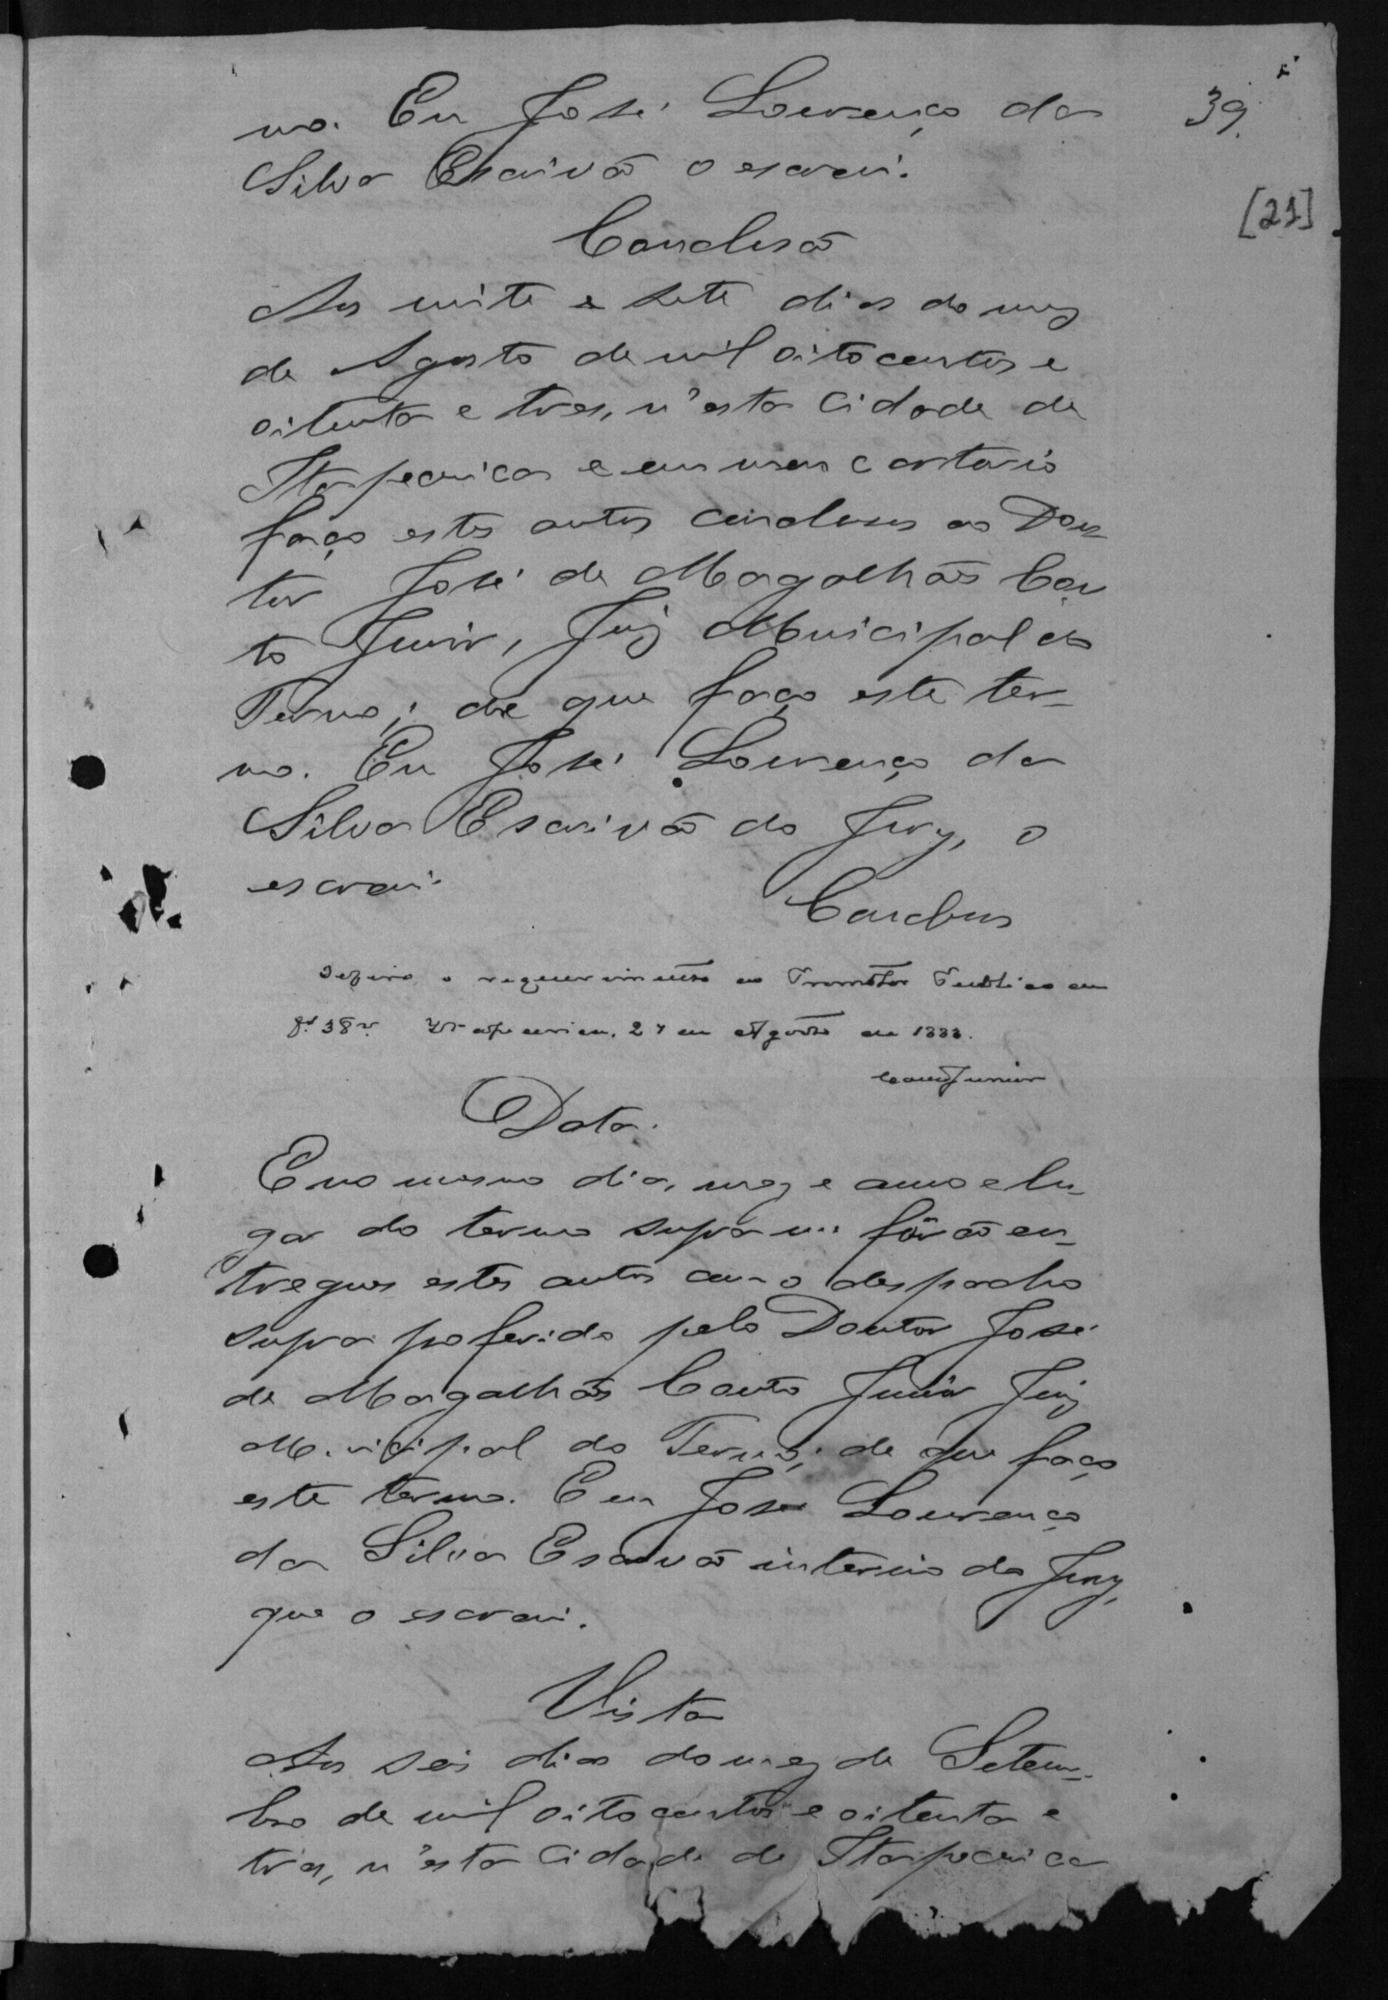 39.
[21]
mo. Eu José Lourenço da
Silva Escrivão o escrevi.
Conclusão
Aos vinte e sete dias do mez
de Agosto de mil oitocentos e
oitenta e tres, n'esta Cidade de
Itapecerica e em meu cartorio
faço estes autos conclusos ao Dou-
tor José de Magalhães Cou
to Junior, Juiz Municipal do
Termo; de que faço este ter-
mo. Eu José Lourenço da
Silva Escrivão do Jury, o
escrevi.
Conclusos
Defiro o requerimento do Promotor Publico em
fl. 38v. Itapecerica, 27 de Agosto de 1883.
Couto Junior
Data.
E no mesmo dia, mez e anno e lu-
gar do termo supra me fôrão en-
tregues estes autos com o despacho
supra proferido pelo Doutor José
de Magalhães Couto Junior Juiz
Municipal do Termo; de que faço
este termo. Eu José Lourenço
da Silva Escrivão interino do Jury,
que o escrevi.
Vista
Aos seis dias do mez de Setem-
bro de mil oitocentos e oitenta e
tres, n'esta Cidade de Itapecerica